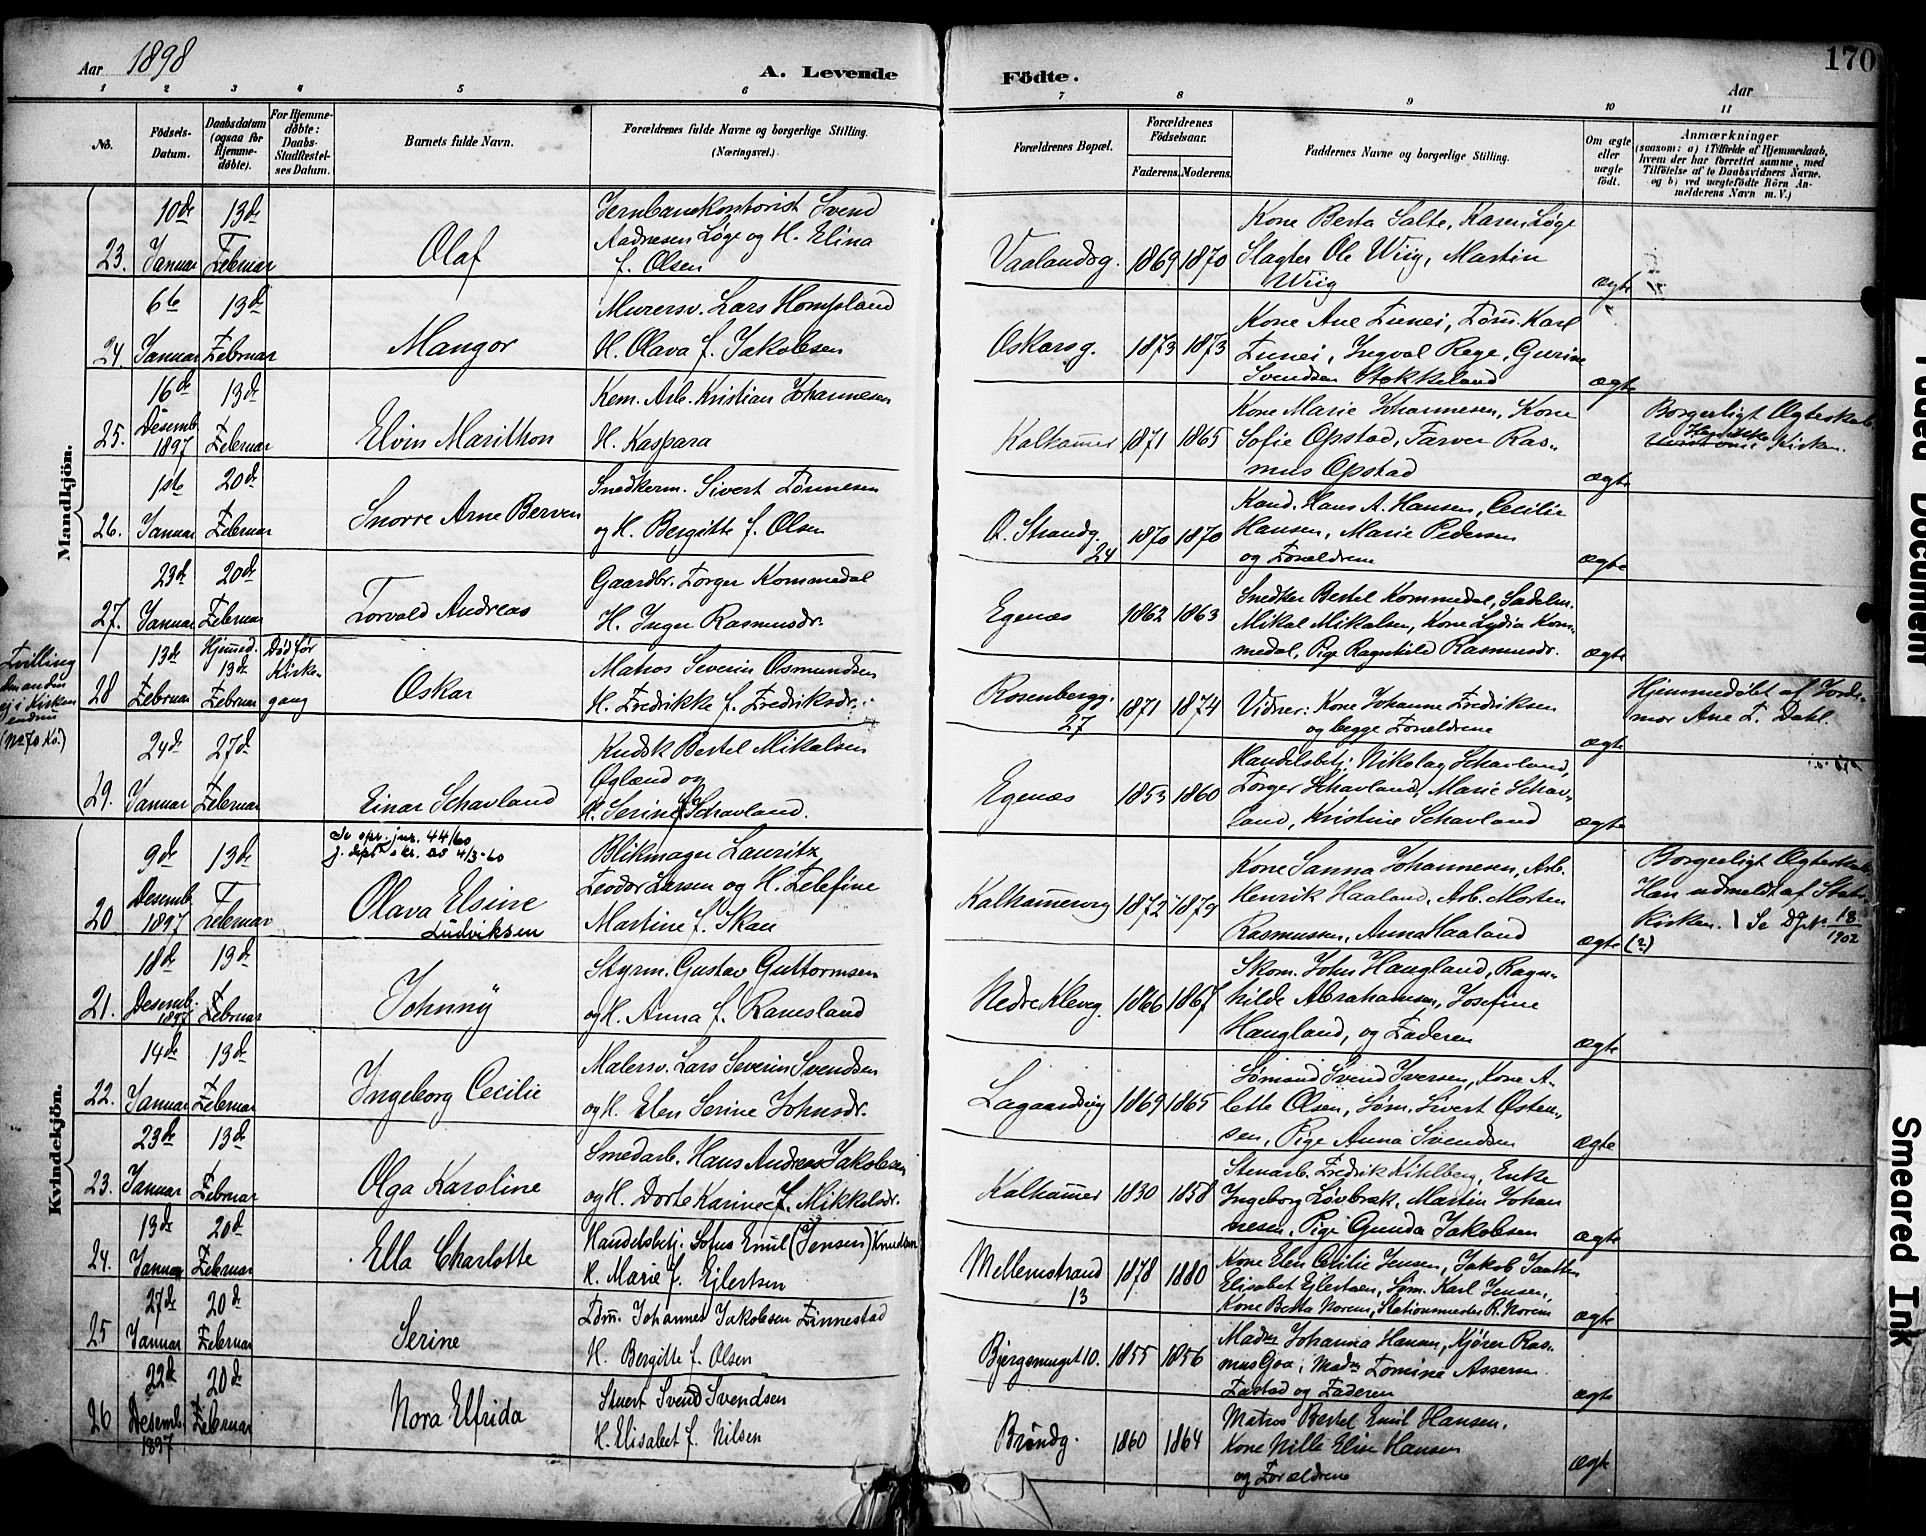 Aar 1898
A. Levende
1 2 3 4 5 6
No.
Födsels-
Datum.
Daabsdatum
(ogsaa for
Hjemme-
döbte).
For Hjemme-
døbte:
Daabs-
Stadfæstel-
ses Datum.
Barnets fulde Navn.
Forældrenes fulde Navne og borgerlige Stilling.
(Næringsvei.)
Mandkjön.
23. 10de Januar 13de Februar
Olaf
Jernbanekontorist Svend
Aadnesen Løge og H. Elina
f. Olsen
24. 6te Januar 13de Februar
Mangor
Murersv. Lars Hompland
H. Olava f. Jakobsen
25. 16de Desemb. 1897 13de Februar
Elvin Marithon
Kem. Arb. Kristian Johannesen
H. Kaspara
26. 1ste Januar 20de Februar
Snorre Arne Berven
Snedkerm. Sivert Tønnesen
og H. Bergitte f. Olsen
27. 23de Januar 20de Februar
Torvald Andreas
Gaardbr. Torger Kommedal
H. Inger Rasmusdr.
Tvilling
den anden
ej i Kirken
endnu
(No 70 Kö.)
28 13de Februar Hjemmed. 13de Februar Død før Kirke-gang
Oskar
Matros Severin Osmundsen
H. Fredrikke f. Fredriksdr.
29. 24de Januar 27de Februar
Einar Schavland
Kudsk Bertel Mikalsen
Øgland og
H. Serine f. Schavland.
Kvindekjön.
Se opr. jnr. 44/60
j. dpts skr. av 4/3-60
20 9de Desemb. 1897 13de Februar
Olava Elsine
Ludviksen
Blikmager Lauritz
Teodor Larsen og H. Telefine
Martine f. Skau
21. 18de Desemb. 1897 13de Februar
Johnny
Styrm. Gustav Guttormsen
og H. Anna f. Ramsland
22. 14de Januar 13de Februar
Ingeborg Cecilie
Malersv. Lars Severin Svendsen
og H. Elen Serine Johnsdr.
23. 23de Januar 13de Februar
Olga Karoline
Smedarb. Hans Andreas Jakobsen
og H. Dorte Karine f. Mikkelsdr.
24. 13de Januar 20de Februar
Ella Charlotte
Handelsbetj. Sofus Emil (Jensen) Knudsen
H. Marie f. Ejlertsen
25 27de Januar 20de Februar
Serine
Tøm. Johannes Jakobsen Finnestad
H. Bergitte f. Olsen
26 22de Desemb. 1897 20de Februar
Nora Elfrida
Stuert Svend Svendsen
H. Elisabet f. Nilsen
Födte.
170
Aar
7 8 9 10 11
Forældrenes Bopæl.
Forældrenes
Födselsaar.
Faderens. Moderens.
Faddernes Navne og borgerlige Stilling.
Om ægte
eller
uægte
födt.
Anmærkninger
(saasom: a) i Tilfælde af Hjemmedaab,
hvem der har forrettet samme, med
Tilföielse af to Daabsvidners Navne.
og b) ved uægtefödte Börn An-
melderens Navn m.V.)
Vaalandsg. 1869 1870
Kone Berta Salte, Karen Løge
Slagter Ole Wiig, Martin
Wiig
ægte
Oskarsg. 1873 1873
Kone Ane Tunei, Tøm. Karl
Tunei, Ingval Rege, Gurine
Svendsen Stokkeland
ægte
Kalhammer 1871 1865
Kone Marie Johannesen, Kone
Sofie Opstad, Farver Ras-
mus Opstad
ægte
Borgerligt Ægteskab
Han ikke Kirken.
Ø. Strandg. 24 1870 1870
Kand. Hans A. Hansen, Cecilie
Hansen, Marie Pedersen
og Forældrene
ægte
Egenæs 1862 1863
Snedker Bertel Kommedal, Sadelm.
Mikal Mikalsen, Kone Lydia Kom-
medal, Pige Ragnhild Rasmusdr.
ægte
Rosenbergg. 27 1871 1874
Vidner: Kone Johanne Fredriksen
og begge Forældrene
ægte
Hjemmedøbt af Jorde-
mor Ane T. Dahl.
Egenæs 1853 1860
Handelsbetj. Nikolay Schavland,
Torger Schavland, Marie Schav-
land, Kristine Schavland
ægte
Kalhammervig 1872 1879
Kone Sanna Johannesen, Arb.
Henrik Haaland, Arb. Morten
Rasmussen, Anna Haaland
ægte (?)
Borgerligt Ægteskab
Han udmeldt af Stats-
Kirken. | Se Dgn 18/1902
Nedre Kleveg. 1866 1867
Skom. John Haugland, Ragn-
hilde Abrahamsen, Josefine
Haugland, og Faderen
ægte
Lagaardsvig 1869 1865
Sømand Svend Iversen, Kone A-
lette Olsen, Søm. Sivert Østen-
sen, Pige Anna Svendsen
ægte
Kalhammer 1830 1858
Stenarb. Fredrik Kihlberg, Enke
Ingeborg Løvbræk, Martin Johan
nesen, Pige Gunda Jakobsen
ægte
Mellemstrand 13 1878 1880
Kone Elen Cecilie Jensen, Jakob Jaatten
Elisabet Ejlertsen, Søm. Karl Jensen,
Kone Berta Norem, Stationmester R. Norem
ægte
Bjergsmuget 10. 1855 1856
Madm. Johanna Hansen, Kjører Ras-
mus Goa; Madm Tomine Assersen
Tastad og Faderen
ægte
Brøndg. 1860 1864
Matros Bertel Emil Hansen.
Kone Nille Elise Hansen
og Forældrene
ægte
Faded Document
Smeared Ink